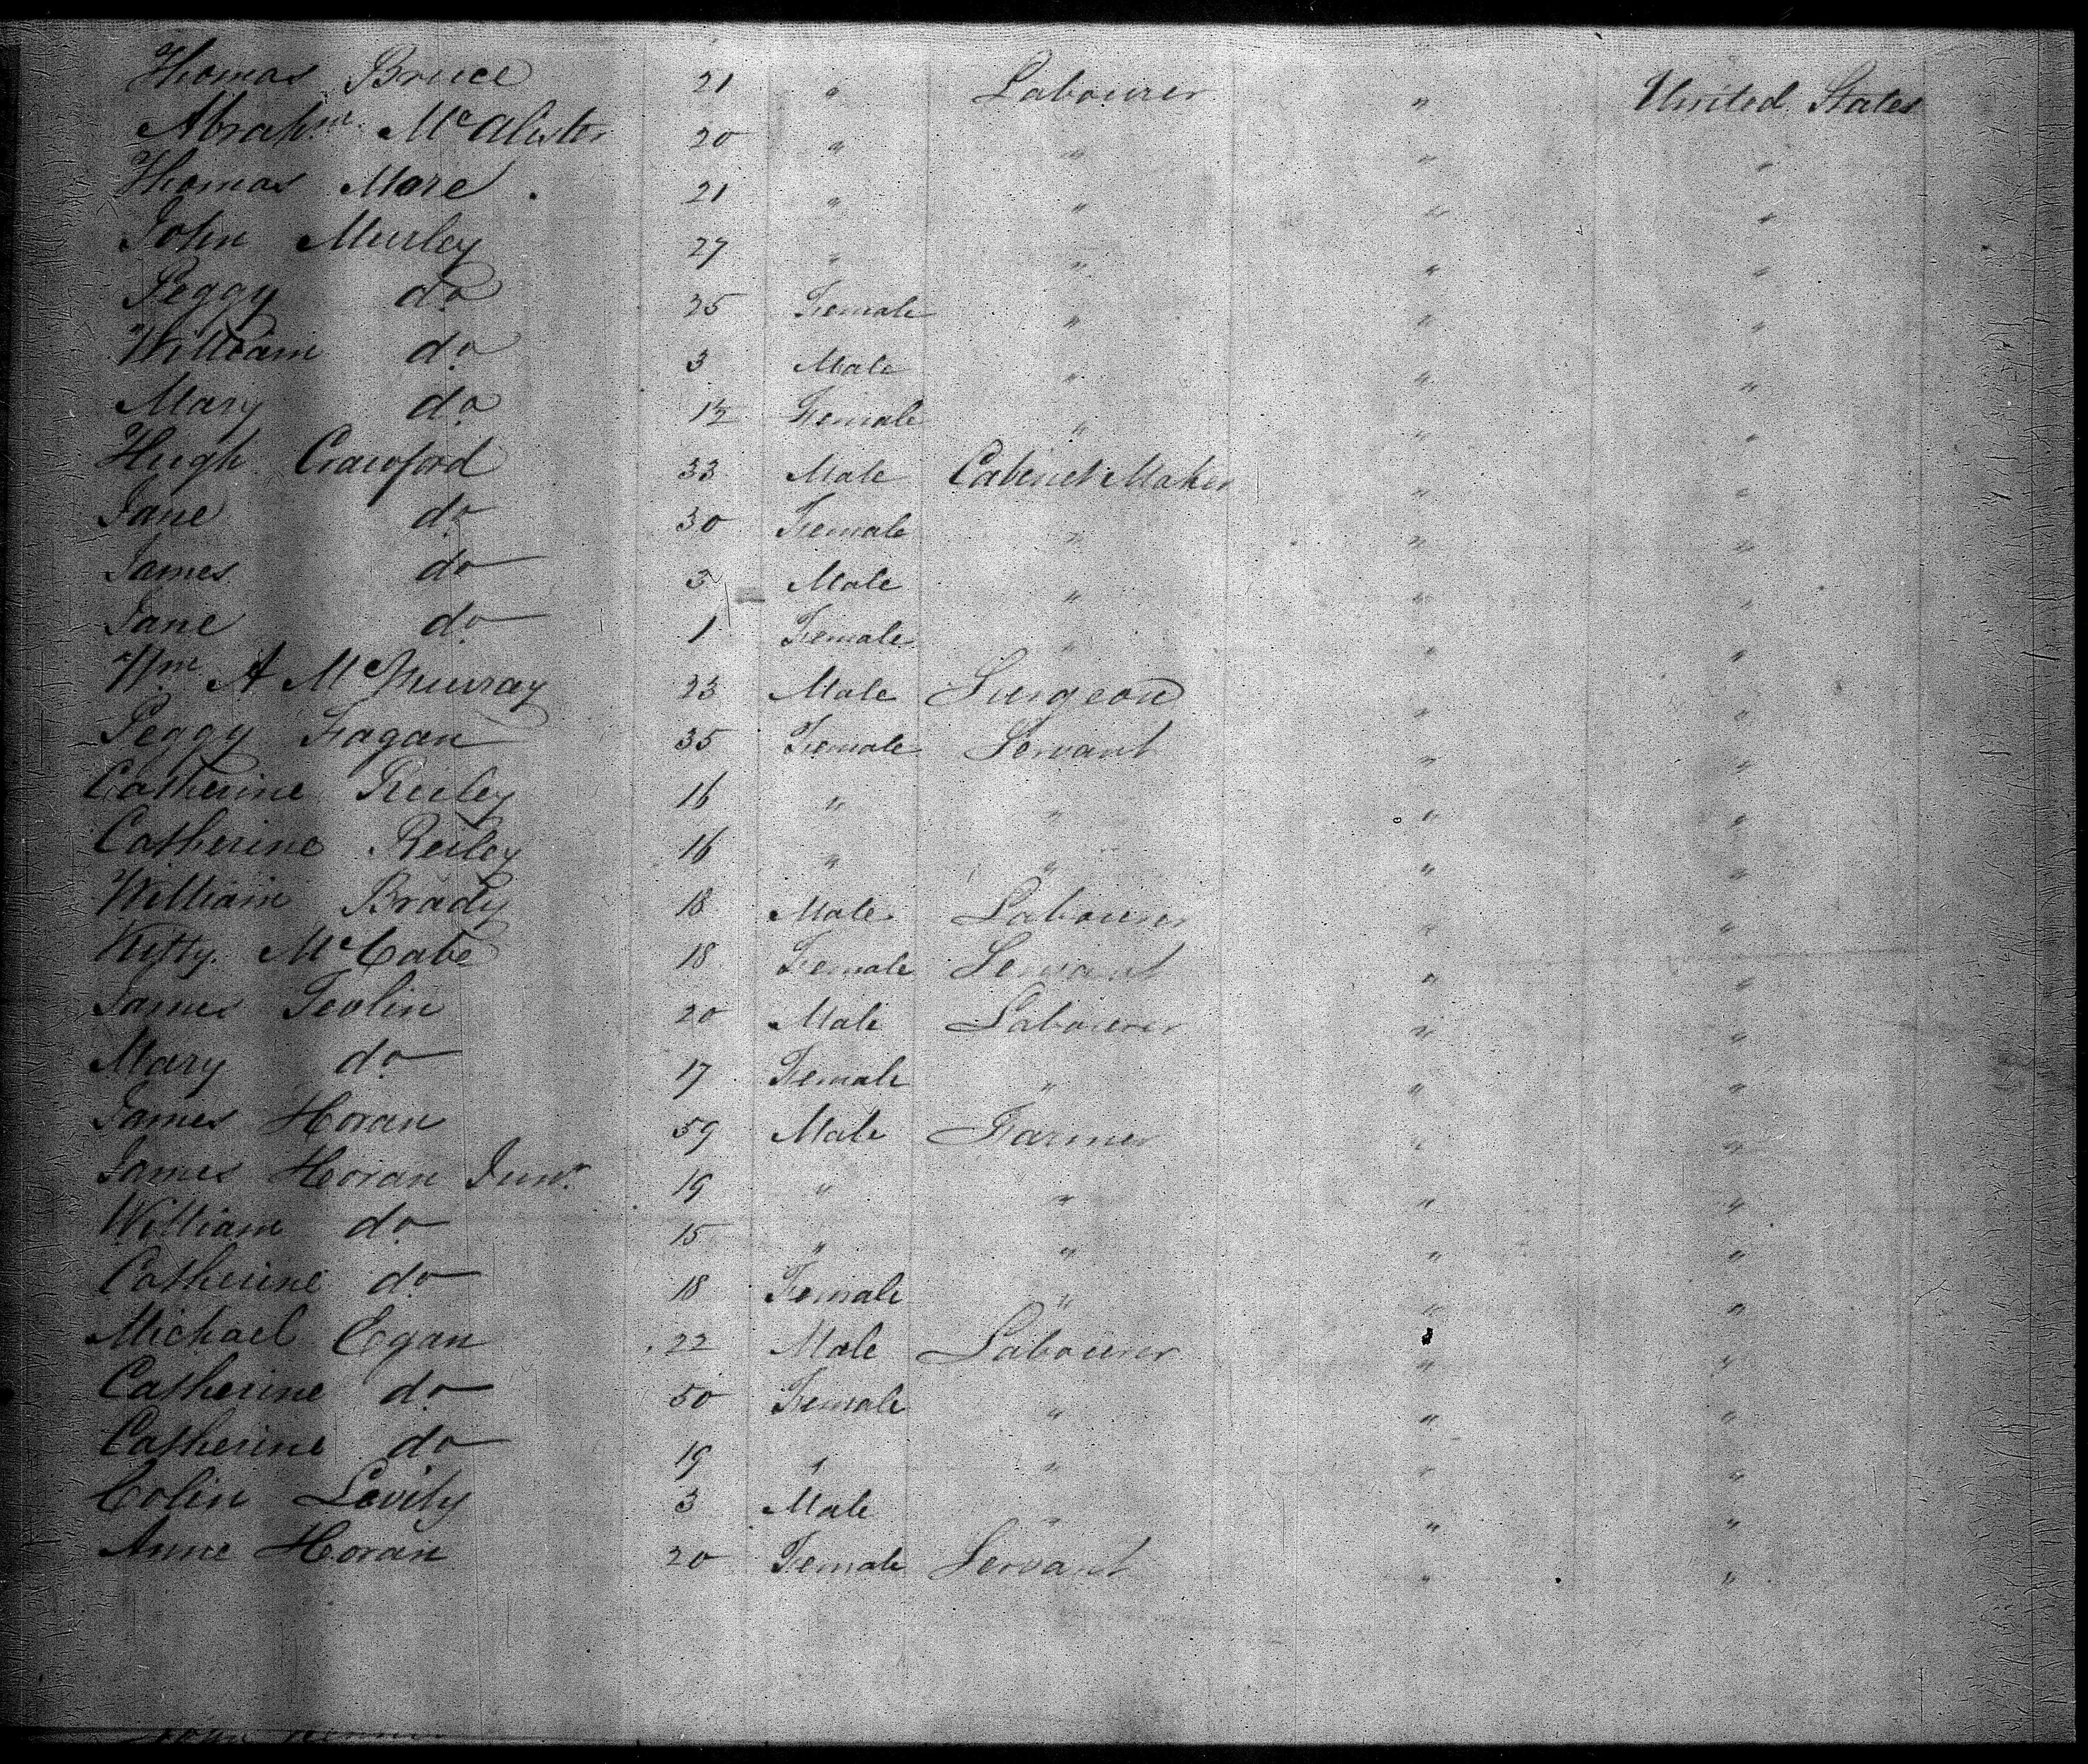 Thomas Bruce 21 " Labourer " United States
Abrahm McAlister 20 " " " "
Thomas More 21 " " " "
John Murley 27 " " " "
Peggy do 25 Female " " "
William do 3 Male " " "
Mary do 1½ Female " " "
Hugh Crawford 33 Male Cabinet Maker " "
Jane do 30 Female " " "
James do 3 Male " " "
Jane do 1 Female " " "
Wm A McMurray 23 Male Surgeon " "
Peggy Fagan 35 Female Servant " "
Catherine Reiley 16 " " " "
Catherine Reiley 16 " " " "
William Brady 18 Male Labourer " "
Kitty McCabe 18 Female Servant " "
James Teolin 20 Male Labourer " "
Mary do 17 Female " " "
James Horan 59 Male Farmer " "
James Horan Junr 19 " " " "
William do 15 " " " "
Catherine do 18 Female " " "
Michael Egan 22 Male Labourer " "
Catherine do 50 Female " " "
Catherine do 19 " " " "
Colin Levity 3 Male " " "
Anne Horan 20 Female Servant " "